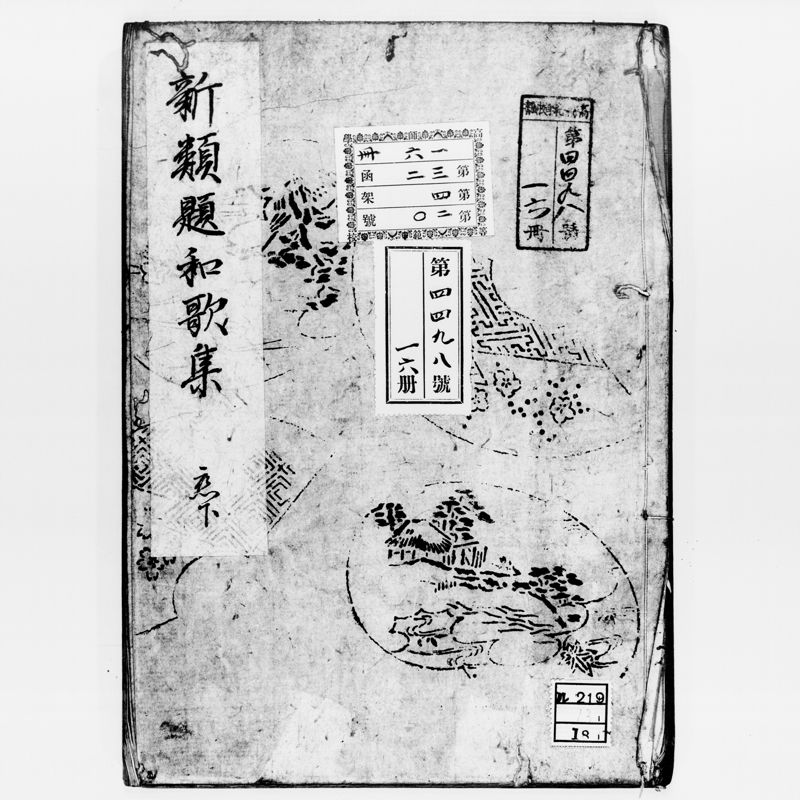 新類題和歌集
恋下
一六冊
第三二函
第四架
第二〇號
第四四九八號
一六冊
第四四九八號
一六冊
219
18